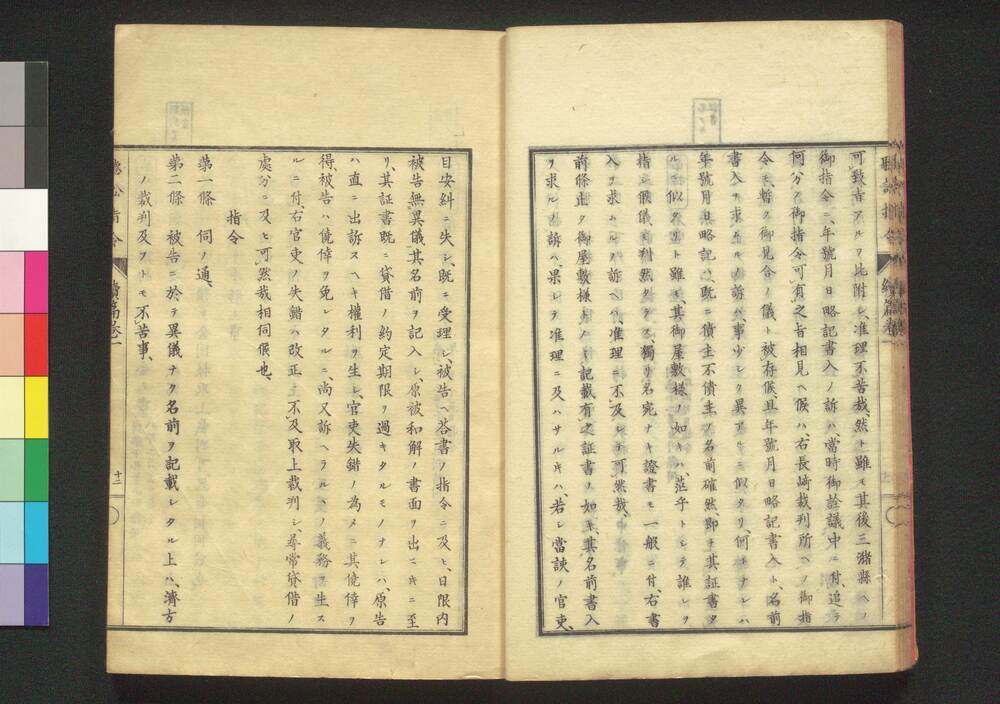 可致吉アルヲ比附シ、准理不苦哉、然ト雖モ其後三潴縣ヘノ
御指令ニ、年號月日略記書入ノ訴ハ、當時御詮議中ニ付、追テ
何分ノ御指令可有之旨相見ヘ候ハ、右長崎裁判所ヘノ御指
令モ、暫ク御見合ノ儀ト被存候、且年號月日略記書入ト、名前
書入ヲ求ルノ訴ハ、事少シク異アルモ似タリ、何トナレハ
年號月日略記ハ、既ニ債主不債主ノ名前確然、即チ其証書タ
ルニ似タリト雖モ、其御屋敷様ノ如キハ、茫乎トシテ誰レヲ
指シ候儀モ判然タラス、獨リ名宛ナキ證書モ一般ニ付、右書
入ヲ求ムルノ訴ヘハ、准理ニ不及シテ可然哉、
前條止タ御屋敷様トノミ記載有之証書ノ如キ、其名前書入
ヲ求ルノ訴ハ、果シテ准理ニ及ハサルキハ、若シ當諌ノ官吏、
目安糾ニ失シ、既ニ受理シ、被告ヘ荅書ノ指令ニ及ヒ、日限内
被告無異儀、其名前ヲ記入シ、原被和解ノ書面ヲ出ニキニ至
リ、其証書既ニ貸借ノ約定期限ヲ過キタルモノナレハ、原告
ハ直ニ出訴スヘキ權利ヲ生シ、官吏失錯ノ為メニ其僥倖ヲ
得、被告ハ僥倖ヲ免レタルニ、尚又訴ヘラルヽノ義務ヲ生ス
ルニ付、右官吏ノ失錯ハ改正シ、不及取上裁判シ、尋常貸借ノ
處分ニ及ヒ可然哉、相伺候也、
指令
第一條　伺ノ通、
第二條　被告ニ於テ異儀ナク名前ヲ記載シタル上ハ、濟方
ノ裁判及フトモ不苦事、
聽訟指令　續篇卷一　十二